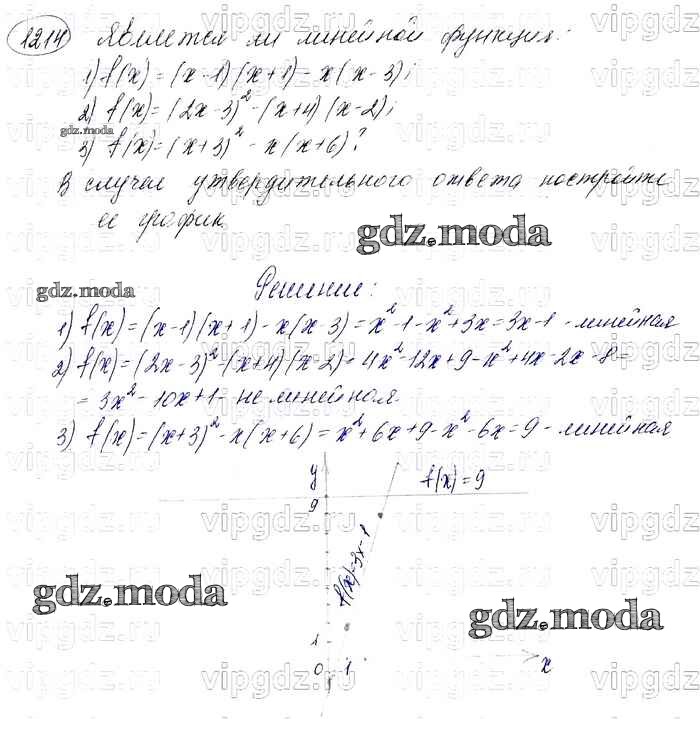 1214 Является ли линейной функция:
1) f(x) = (x-1)(x+1) - x(x-3);
2) f(x) = (2x-3)² - (x+4)(x-2);
gdz.moda
3) f(x) = (x+3)² - x(x+6)?
В случае утвердительного ответа постройте
её график
gdz.moda
gdz.moda
Решение:
1) f(x) = (x-1)(x+1) - x(x-3) = x² - 1 - x² + 3x = 3x - 1 - линейная
2) f(x) = (2x-3)² - (x+4)(x-2) = 4x² - 12x + 9 - x² + 4x - 2x - 8 =
= 3x² - 10x + 1 - не линейная
3) f(x) = (x+3)² - x(x+6) = x² + 6x + 9 - x² - 6x = 9 - линейная
y
f(x) = 9
9
f(x) = 3x - 1
gdz.moda
gdz.moda
1
0 1 x
vipgdz.ru